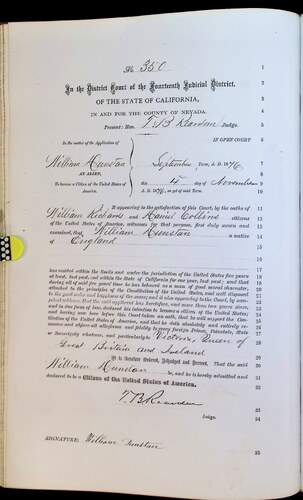 No 350
In the District Court of the Fourteenth Judicial District.
OF THE STATE OF CALIFORNIA,
IN AND FOR THE COUNTY OF NEVADA.
Present: Hon. T. B. Reardon Judge.
In the matter of the Application of
IN OPEN COURT
William Hunstan
AN ALIEN,
To become a Citizen of the United States of America.
September Term, A. D. 1876.
this 4th day of November
A. D. 1876, as yet of said Term.
It appearing to the satisfaction of this Court, by the oaths of
William Richards and Daniel Collins citizens
of the United States of America, witnesses for that purpose, first duly sworn and
examined, that William Hunstan a native
of England
has resided within the limits and under the jurisdiction of the United States five years
at least, last past, and within the State of California for one year, last past; and that
during all of said five years' time he has behaved as a man of good moral character,
attached to the principles of the Constitution of the United States, and well disposed
to the good order and happiness of the same; and it also appearing to the Court, by com-
petent evidence, that the said applicant has heretofore, and more than two years since,
and in due form of law, declared his intention to become a citizen of the United States;
and having now here before this Court taken an oath, that he will support the Con-
stitution of the United States of America, and that he doth absolutely and entirely re-
nounce and abjure all allegiance and fidelity to every foreign Prince, Potentate, State
or Sovereignty whatever, and particularly to Victoria, Queen of
Great Britain and Ireland
It is therefore Ordered, Adjudged and Decreed, That the said
William Hunstan be, and he is hereby admitted and
declared to be a Citizen of the United States of America.
T. B. Reardon
Judge.
SIGNATURE: William Hunstan
1
2
3
4
5
6
7
8
9
10
11
12
13
14
15
16
17
18
19
20
21
22
23
24
25
26
27
28
29
30
31
32
33